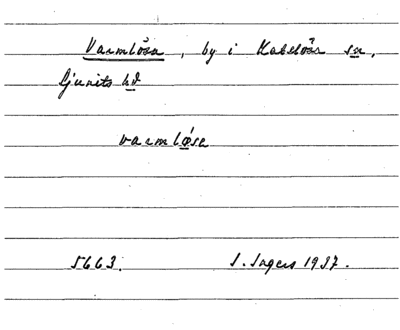 Varmlösa, by i Katslösa sn,
Ljunits hd
varmløsa
5663. S. Ingers 1937.